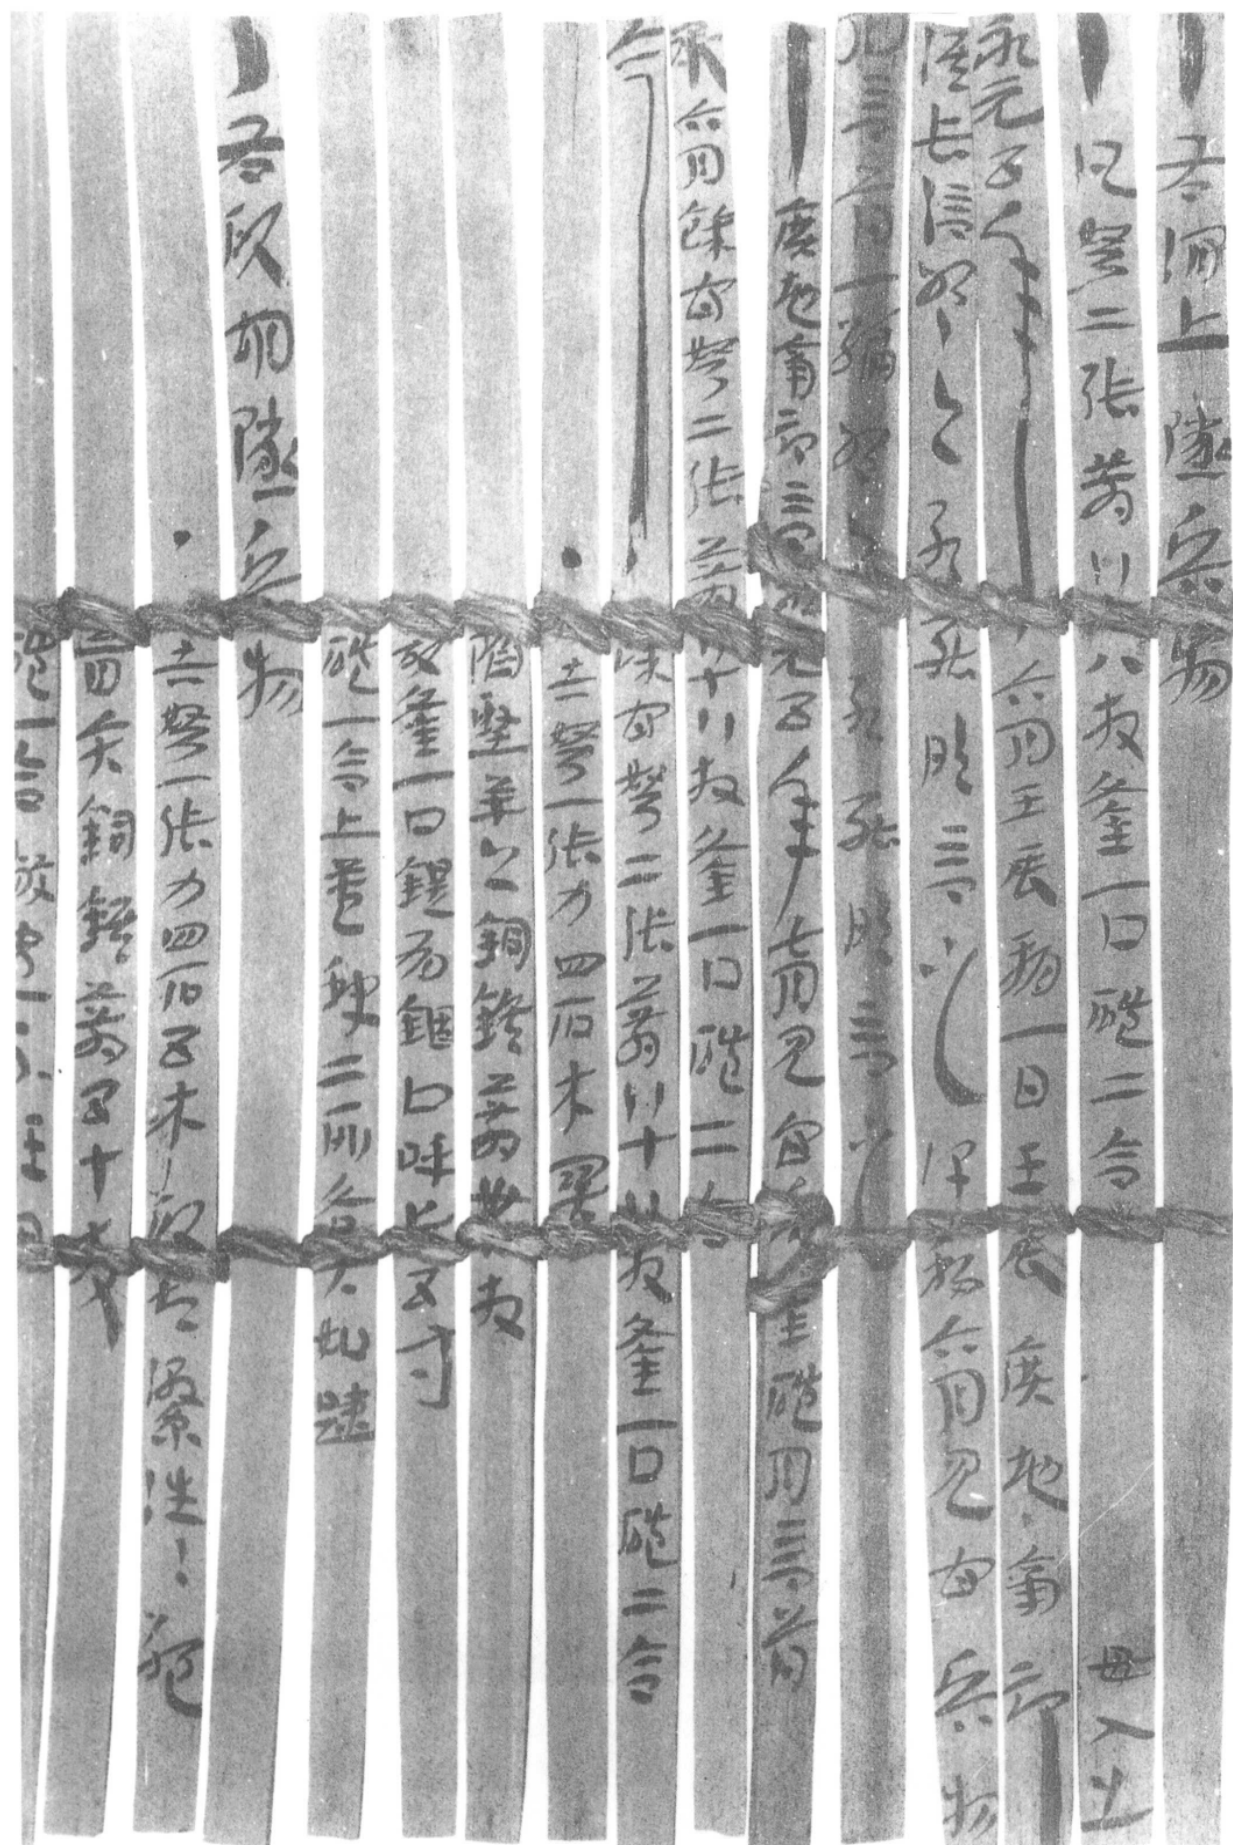 右澗上隧兵物
凡弩二張箭八十八枚釜一口磑二合 毋入出
永元五年六月壬辰朔一日壬辰廣地南部
候長信叩頭死罪敢言之謹移六月見官兵物
月言簿一編叩頭死罪敢言之
廣地南部言永元五年七月見官兵釜磑月言簿
承六月餘官弩二張箭八十八枚釜一口磑二合
今餘官弩二張箭八十八枚釜一口磑二合
●赤弩一張力四石木關
陷堅羊頭銅鍭箭卅八枚
故釜一口鍉有錮口呼長五寸
磑一合上蓋缺二所各大如踈
右破胡隧兵物
●赤弩一張力四石五木破起繳往往絶
盲矢銅鍭箭五十枚
磑一合敝盡不任用